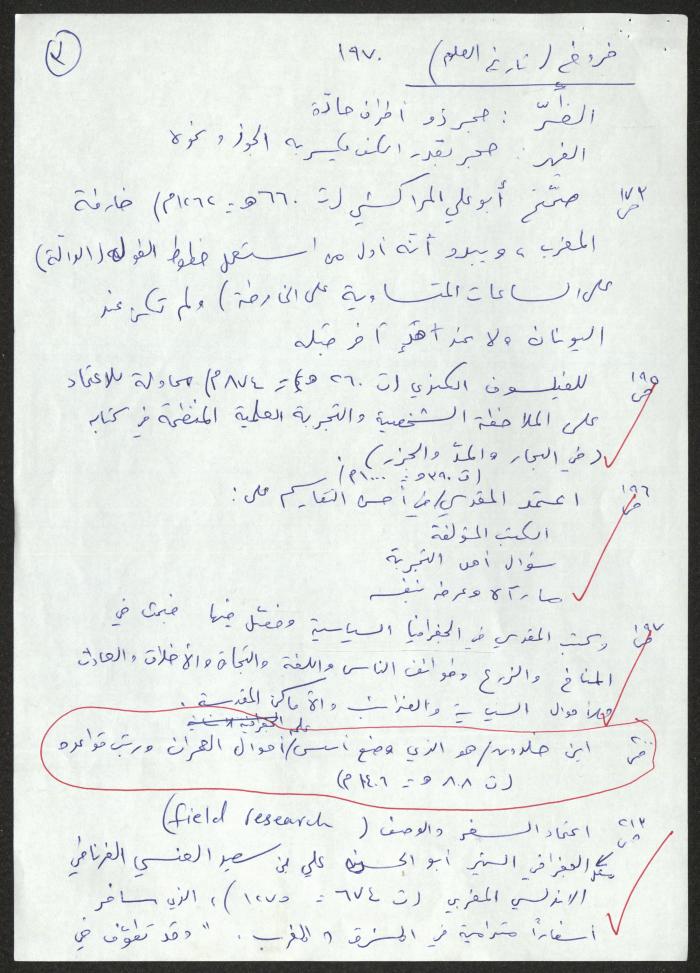 ٢
فروخ (تاريخ العلوم) ١٩٧٠
الظِّرّ : حجر ذو أطراف حادّة
الفهر : حجر بقدر الكف يكسر به الجوز ونحوه
ص ١٧٣ صحّح أبو علي المراكشي (ت ٦٦٠ هـ = ١٢٦٢ م) خارقة
المغرب، ويبدو أنّه أول من استعمل خطوط الطول (الدالّة)
على الساعات المتساوية على الخارطة) ولم تكن عند
اليونان ولا عند أحدٍ آخر قبله
ص ١٩٥ للفيلسوف الكندي (ت ٢٦٠ هـ = ٨٧٤ م) محاولة للاعتماد
على الملاحظة الشخصية والتجربة العلمية المنظمة في كتابه
(في البحار والمدّ والجزر).
(ت ٣٩٠ هـ = ١٠٠٠ م)
ص ١٩٦ اعتمد المقدسي / في أحسن التقاسيم على :
الكتب المؤلفة
سؤال أهل التجربة
ما رآه وعرفه بنفسه
ص ١٩٧ وكتب المقدسي في الجغرافيا السياسية وفصّل فيها فبحث في
المناخ والزرع وطوائف الناس واللغة والتجارة والأخلاق والعادات
والأحوال السياسية والضرائب والأماكن المقدسة.
على
ص ٢٠٠ ابن خلدون / هو الذي وضع أسس / أحوال العمران ورتب قواعده
(ت ٨٠٨ هـ = ١٤٠٦ م)
ص ٢١٣ اعتماد السفر والوصف (field research)
مثل الجغرافي الشهير أبو الحسن علي بن سعيد العنسي الغرناطي
الأندلسي المغربي (ت ٦٧٤ = ١٢٧٥)، الذي سافر
أسفاراً مترامية في المشرق والمغرب. "وقد تطوّف في